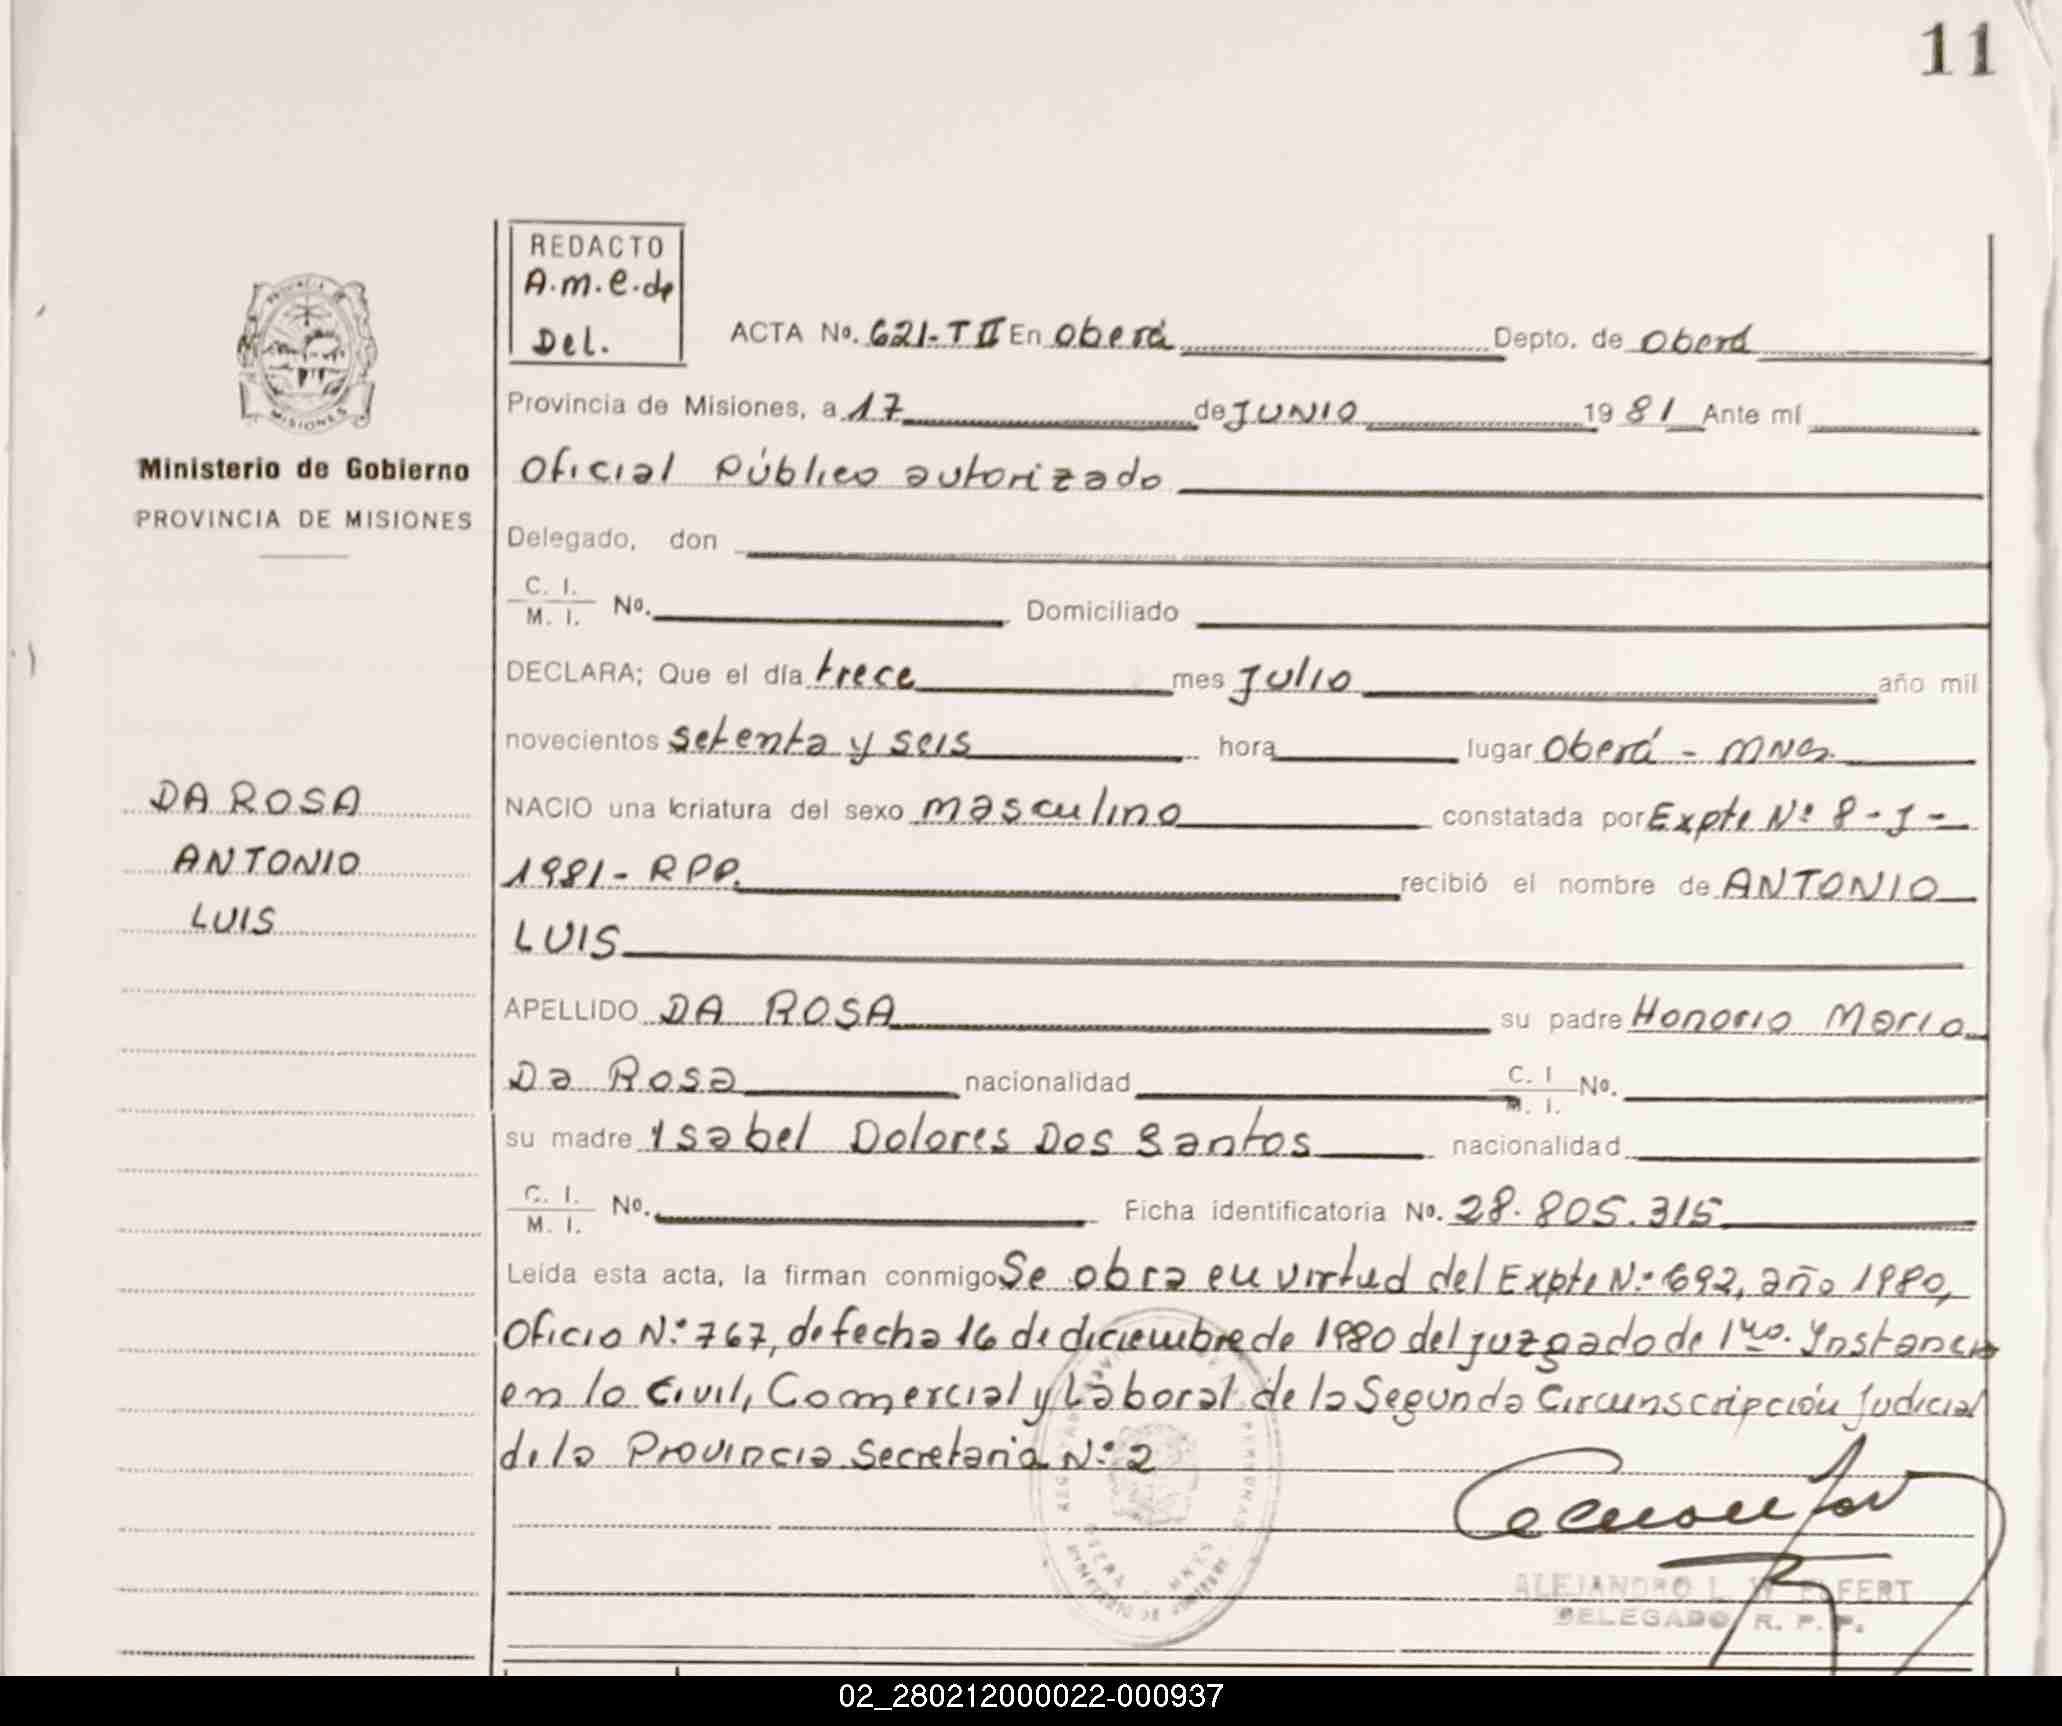 11
REDACTO
A.m.e.de
Del.
ACTA No. 621-T II En Oberá Depto. de Oberá
Provincia de Misiones, a 17 de JUNIO 19 81 Ante mí
Oficial Público autorizado
Delegado, don
C. I.
M. I. No. Domiciliado
DECLARA; Que el día trece mes Julio año mil
novecientos setenta y seis hora lugar Oberá - MNes.
NACIO una criatura del sexo masculino constatada por Expte Nº 8 - J -
1981 - RPP. recibió el nombre de ANTONIO
LUIS
APELLIDO DA ROSA su padre Honorio Mario
Da Rosa nacionalidad C. I. M. I. No.
su madre Ysabel Dolores Dos Santos nacionalidad
C. I.
M. I. No. Ficha identificatoria No. 28.805.315
Leída esta acta, la firman conmigo Se obra en virtud del Expte Nº 692, año 1980,
Oficio Nº 767, de fecha 16 de diciembre de 1980 del juzgado de 1ra. Ynstancia
en lo Civil, Comercial y Laboral de la Segunda Circunscripción Judicial
de la Provincia Secretaria Nº 2
ALEJANDRO L. W. ELFERT
DELEGADO R. P. P.
MISIONES
Ministerio de Gobierno
PROVINCIA DE MISIONES
DA ROSA
ANTONIO
LUIS
02_280212000022-000937